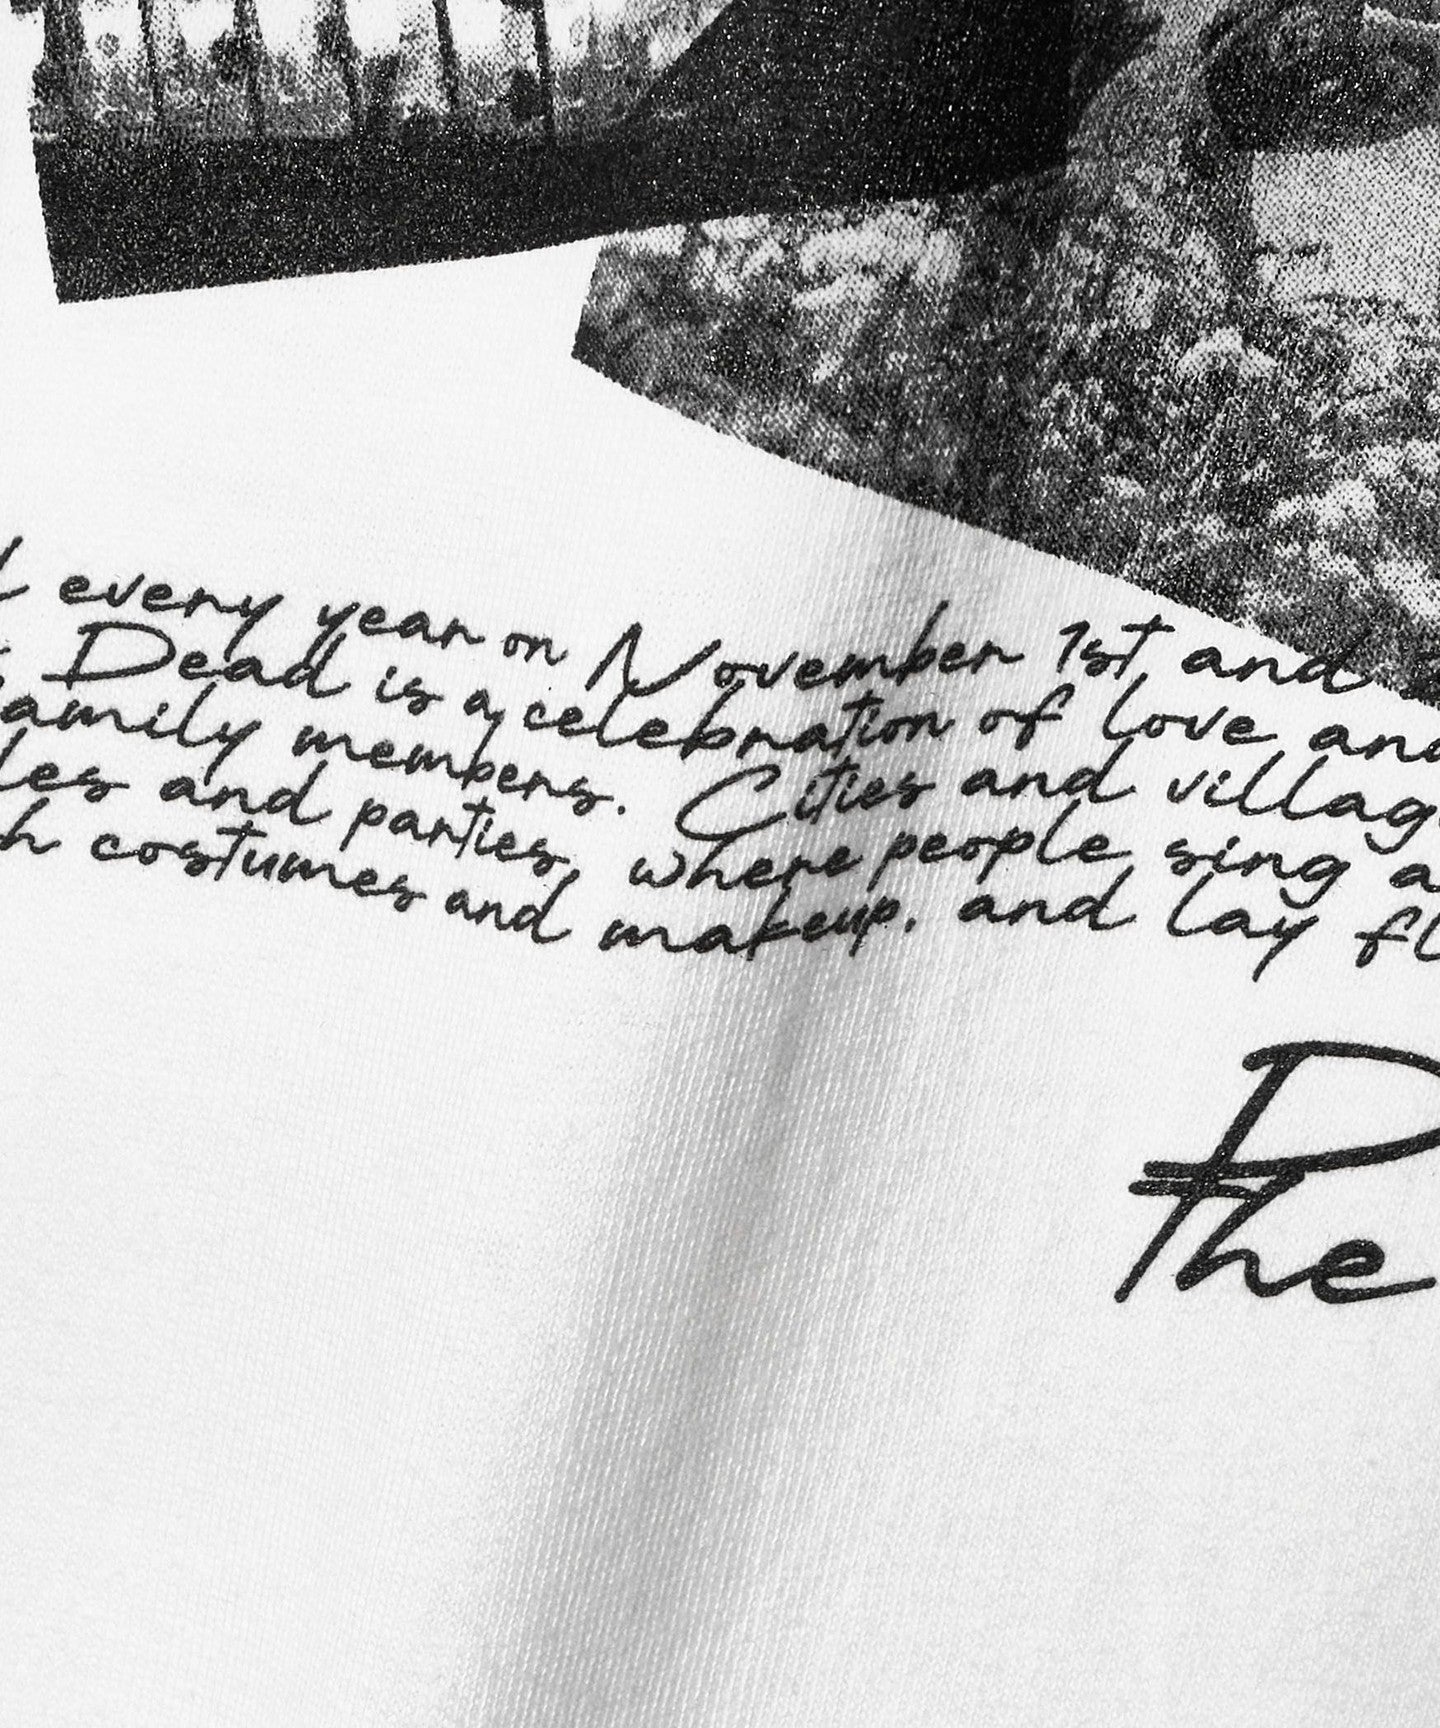 every year on November 1st and
Dead is a celebration of love and
family members. Cities and villag
les and parties, where people sing a
h costumes and makeup, and lay fl
D
the